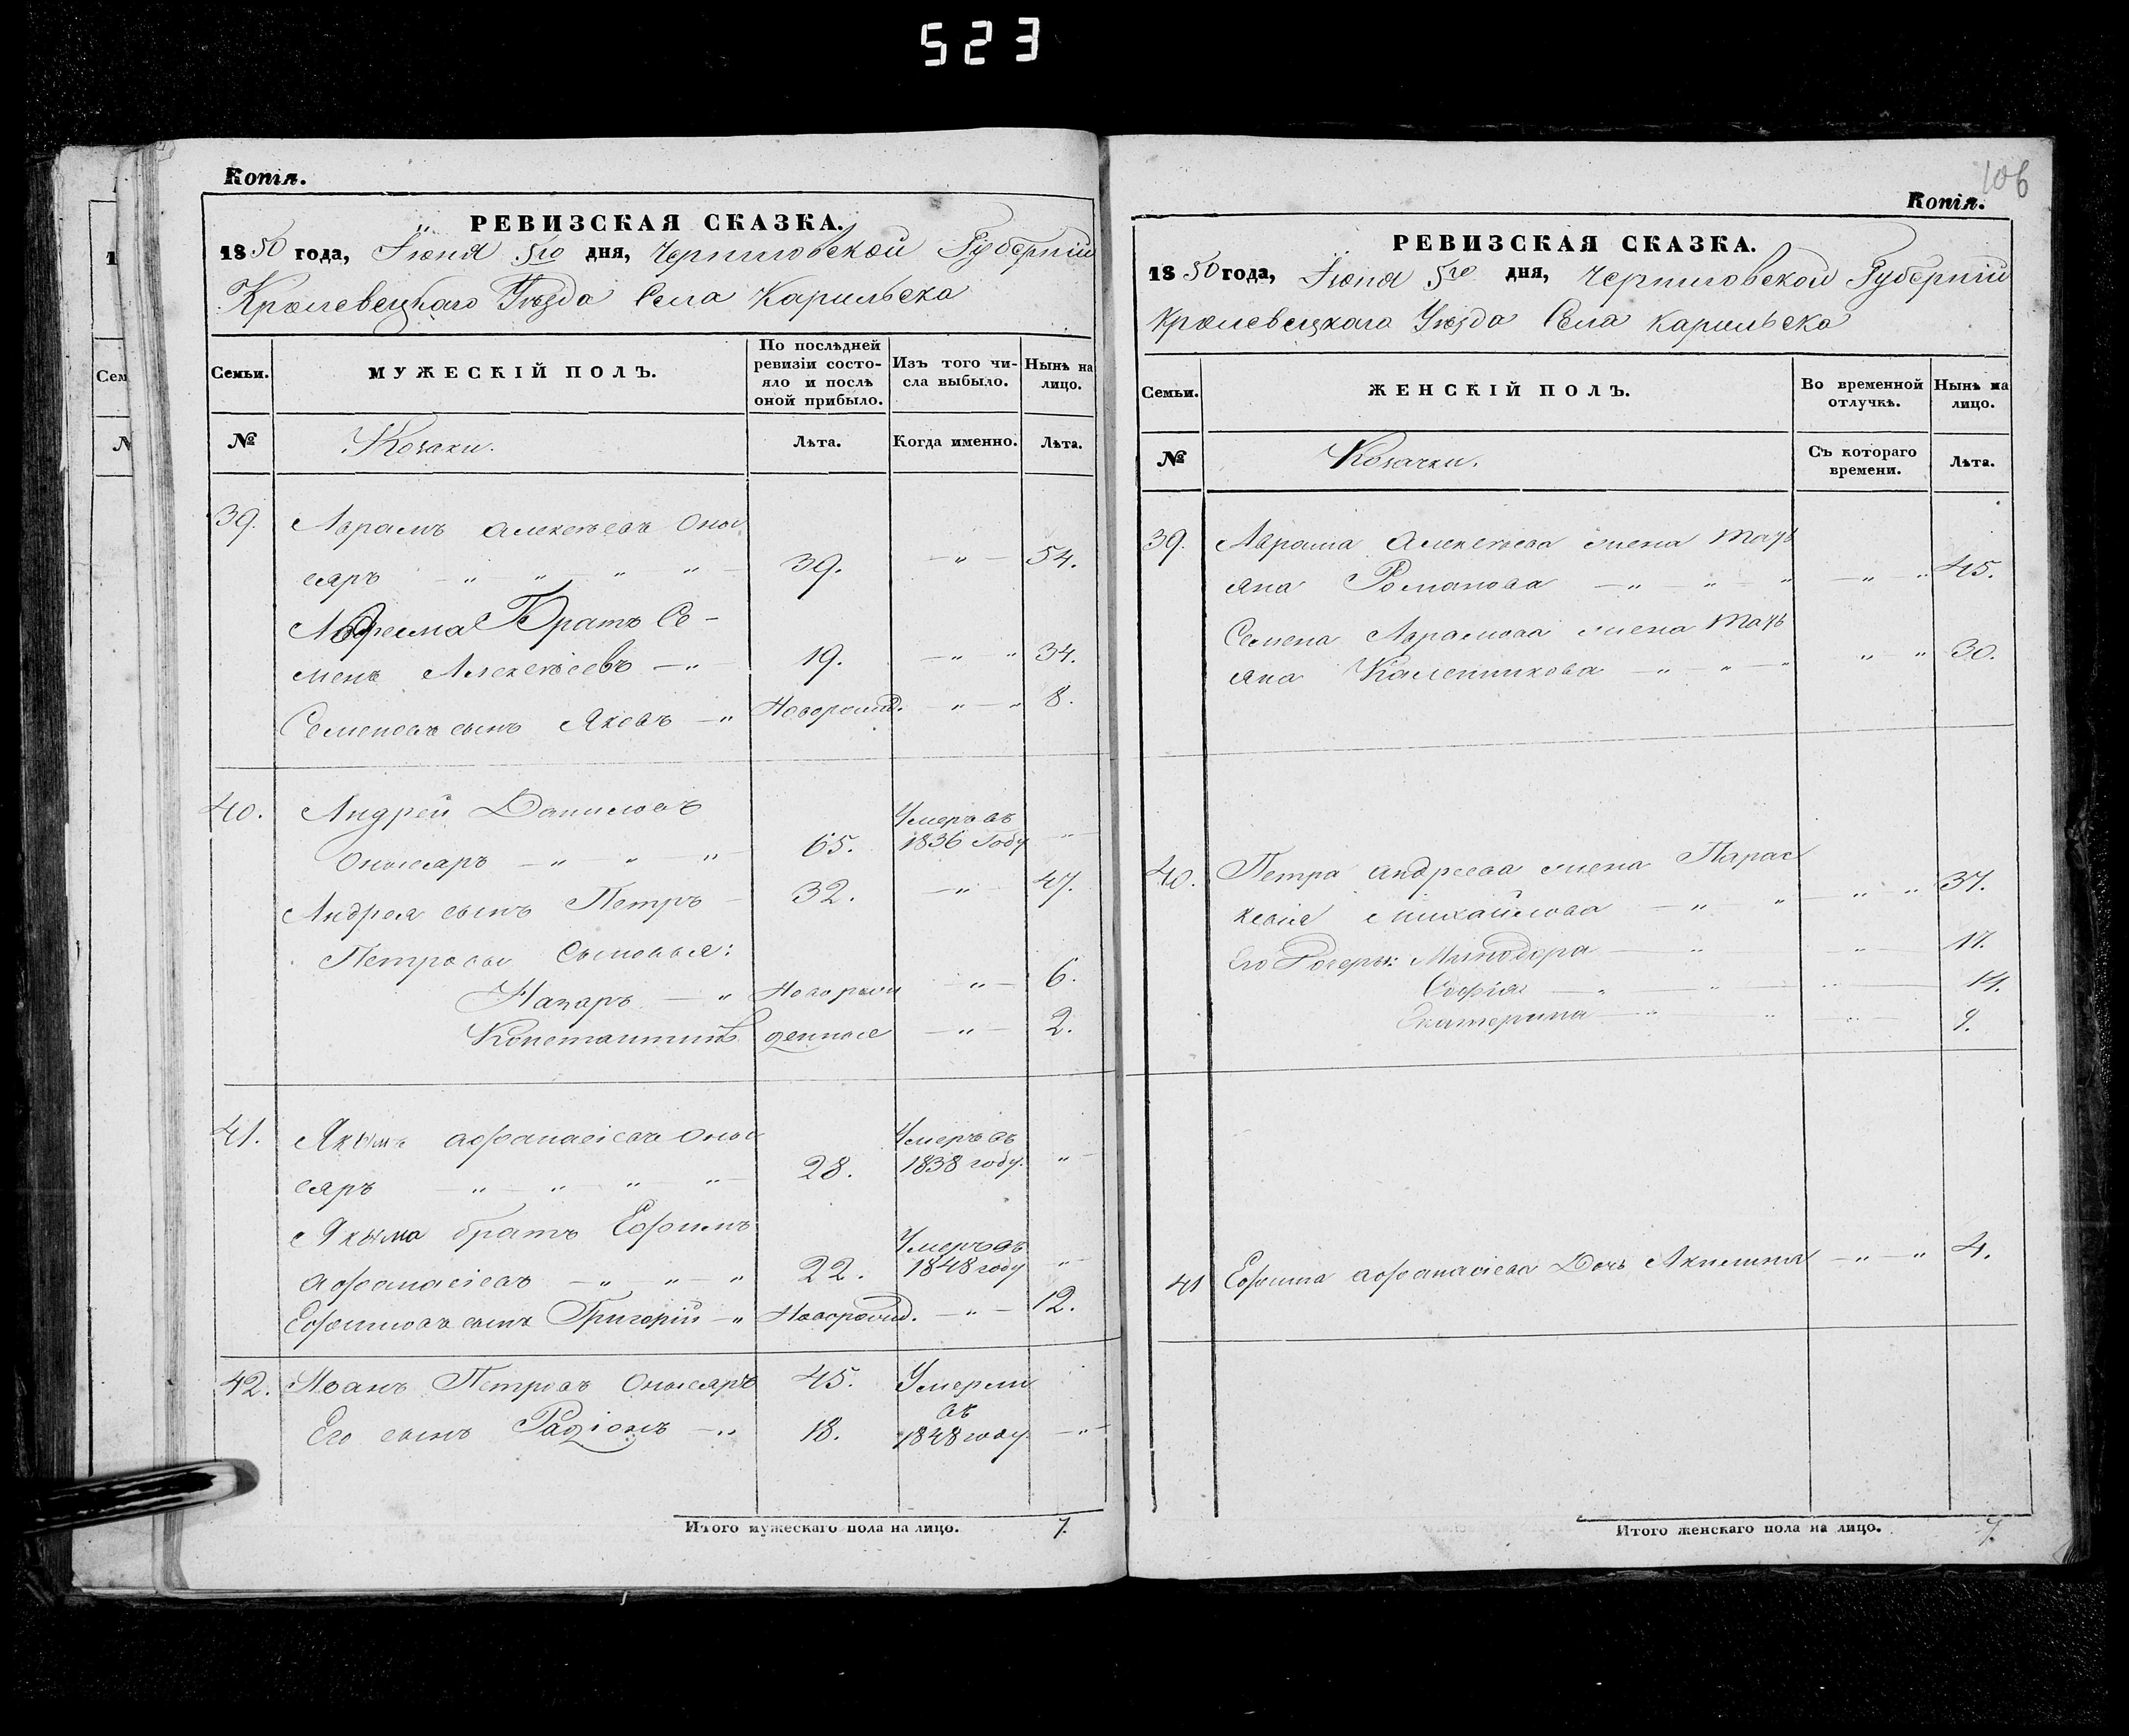 523
Копія.
РЕВИЗСКАЯ СКАЗКА.
1850 года, Іюня 5го дня, Черниговской Губерніи
Кролевецкаго Уѣзда Села Карильска
Семьи.
МУЖЕСКІЙ ПОЛЪ.
По послѣдней ревизіи состо-
яло и послѣ оной прибыло.
Изъ того чи-
сла выбыло.
Нынѣ на
лицо.
№
Козаки.
Лѣта.
Когда именно.
Лѣта.
39. Аврамъ Алексѣевъ
39. 54.
Братъ Се-
менъ Алексѣевъ 19. 34.
Семеновъ сынъ ЯковъНоворожд. 8.
40. Андрей Даниловъ
65. Умеръ въ
1836 Году
Андрея сынъ Петръ 32. 47.
Петровы Сыновья:
Назаръ Новорож 6.
Константинъ денные 2.
41. Якымъ Афанасіевъ
28. Умеръ въ
1838 году.
Якыма братъ Ефимъ
Афанасіевъ 22. Умеръ въ
1848 году
Ефимовъ сынъ Григорій Новорожд. 12.
42. Иванъ Петровъ 45. Умерли
Его сынъ Радіонъ 18. въ
1848 году.
Итого мужескаго пола на лицо. 7.
106
Копія.
РЕВИЗСКАЯ СКАЗКА.
1850 года, Іюня 5го дня, Черниговской Губерніи
Кролевецкаго Уѣзда Села Карильска
Семьи.
ЖЕНСКІЙ ПОЛЪ.
Во временной
отлучкѣ.
Нынѣ на
лицо.
№
Козачки.
Съ котораго
времени.
Лѣта.
39. Аврама Алексѣева жена Таť
яна Романова 45.
Семена жена
яна Калениикова 30.
40. Петра Андреева жена Парас
кевія Михайлова 37.
Его Дочеры: Минодора 17.
Софія 14.
Екатерина 9.
41 Ефима Афанасіева Дочь Акилина 4.
Итого женскаго пола на лицо. 7.